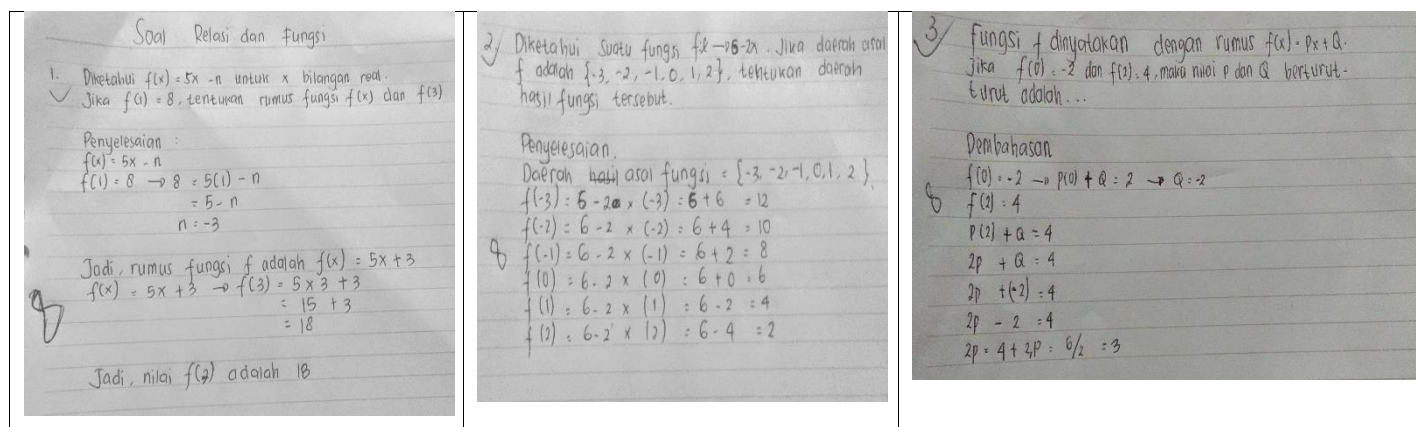 Soal Relasi dan Fungsi
1. Diketahui f(x) = 5x - n untuk x bilangan real.
Jika f(1) = 8, tentukan rumus fungsi f(x) dan f(3)
Penyelesaian :
f(x) = 5x - n
f(1) = 8 → 8 = 5(1) - n
= 5 - n
n = -3
Jadi, rumus fungsi f adalah f(x) = 5x + 3
f(x) = 5x + 3 → f(3) = 5 x 3 + 3
= 15 + 3
= 18
8
Jadi, nilai f(3) adalah 18
2, Diketahui suatu fungsi f:x → 6-2x. Jika daerah asal
f adalah {-3, -2, -1, 0, 1, 2}, tentukan daerah
hasil fungsi tersebut.
Penyelesaian.
Daerah hasil asal fungsi = {-3, -2, -1, 0, 1, 2}.
f(-3) = 6 - 2 x (-3) = 6 + 6 = 12
f(-2) = 6 - 2 x (-2) = 6 + 4 = 10
8 f(-1) = 6 - 2 x (-1) = 6 + 2 = 8
f(0) = 6 - 2 x (0) = 6 + 0 = 6
f(1) = 6 - 2 x (1) = 6 - 2 = 4
f(2) = 6 - 2 x (2) = 6 - 4 = 2
3 Fungsi f dinyatakan dengan rumus f(x) = Px + Q.
Jika f(0) = -2 dan f(2) = 4, maka nilai P dan Q berturut-
turut adalah...
Pembahasan
f(0) = -2 → P(0) + Q = 2 → Q = -2
8 f(2) = 4
P(2) + Q = 4
2p + Q = 4
2p + (-2) = 4
2p - 2 = 4
2p = 4 + 2, P = 6/2 = 3